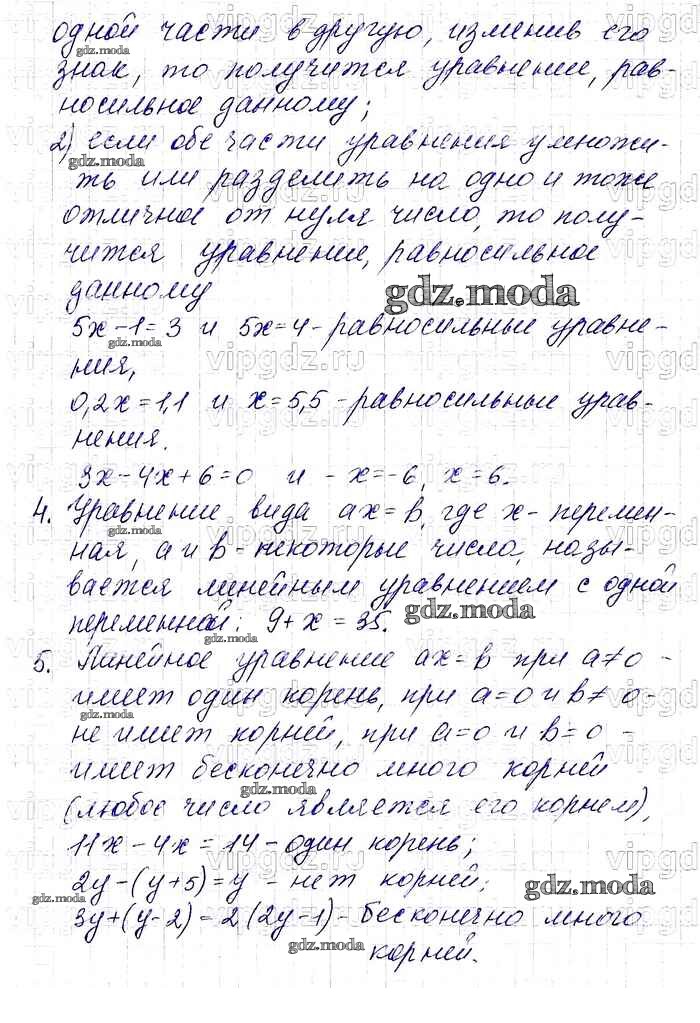 одной части в другую, изменив его
знак, то получится уравнение, рав-
носильное данному;
2) если обе части уравнения умножи-
ть или разделить на одно и тоже
отличное от нуля число, то полу-
чится уравнение, равносильное
данному
5x-1=3 и 5x=4 - равносильные уравне-
ния,
0,2x=1,1 и x=5,5 - равносильные урав-
нения.
3x-4x+6=0 и -x=-6, x=6.
4. Уравнение вида ax=b, где x- перемен-
ная, a и b - некоторые числа, назы-
вается линейным уравнением с одной
переменной: 9+x=35.
5. Линейное уравнение ax=b при a≠0 -
имеет один корень, при a=0 и b≠0-
не имеет корней, при a=0 и b=0 -
имеет бесконечно много корней
(любое число является его корнем),
11x-4x=14 - один корень;
2y-(y+5)=y - нет корней;
3y+(y-2)=2(2y-1) - бесконечно много
корней.
gdz.moda
gdz.moda
gdz.moda
gdz.moda
gdz.moda
gdz.moda
gdz.moda
gdz.moda
gdz.moda
gdz.moda
gdz.moda
gdz.moda
vipgdz.ru